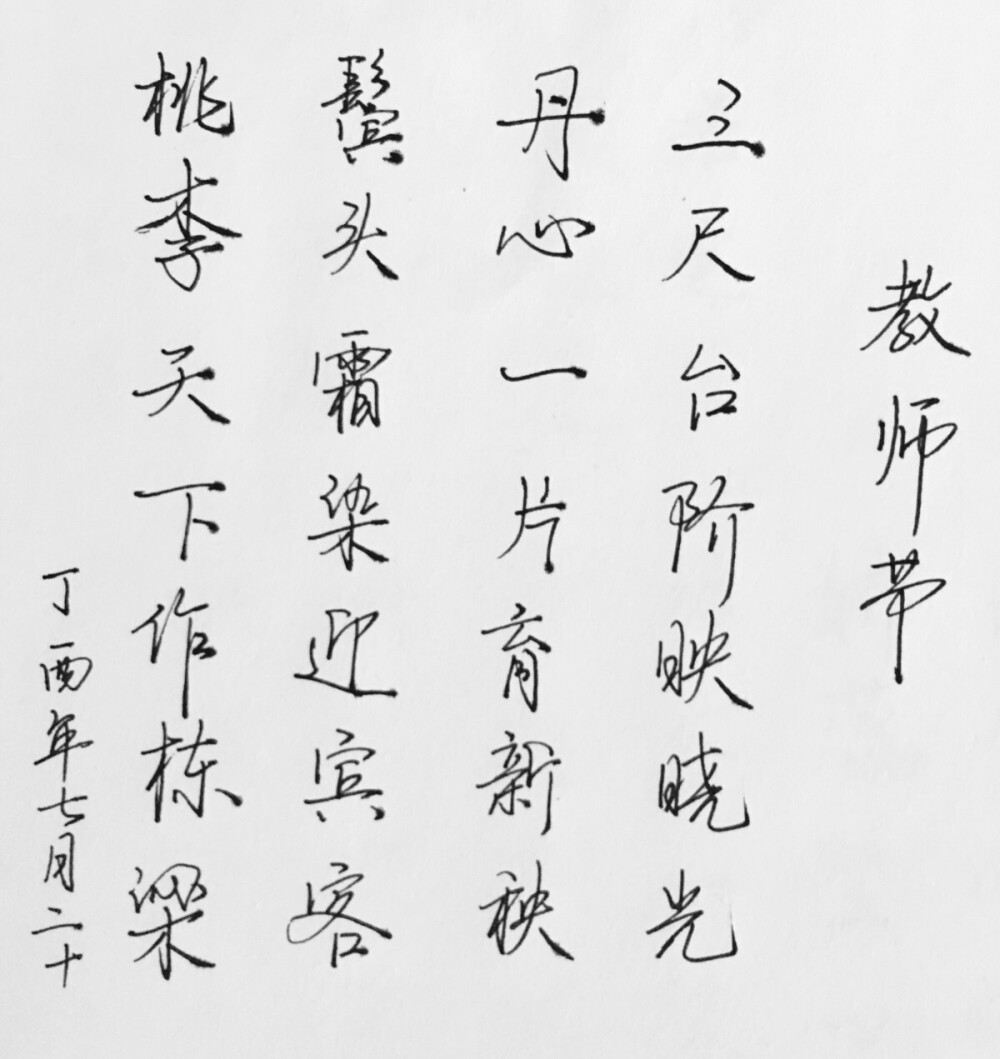 教师节
三尺台阶映晓光
丹心一片育新秧
鬓头霜染迎宾客
桃李天下作栋梁
丁酉年七月二十